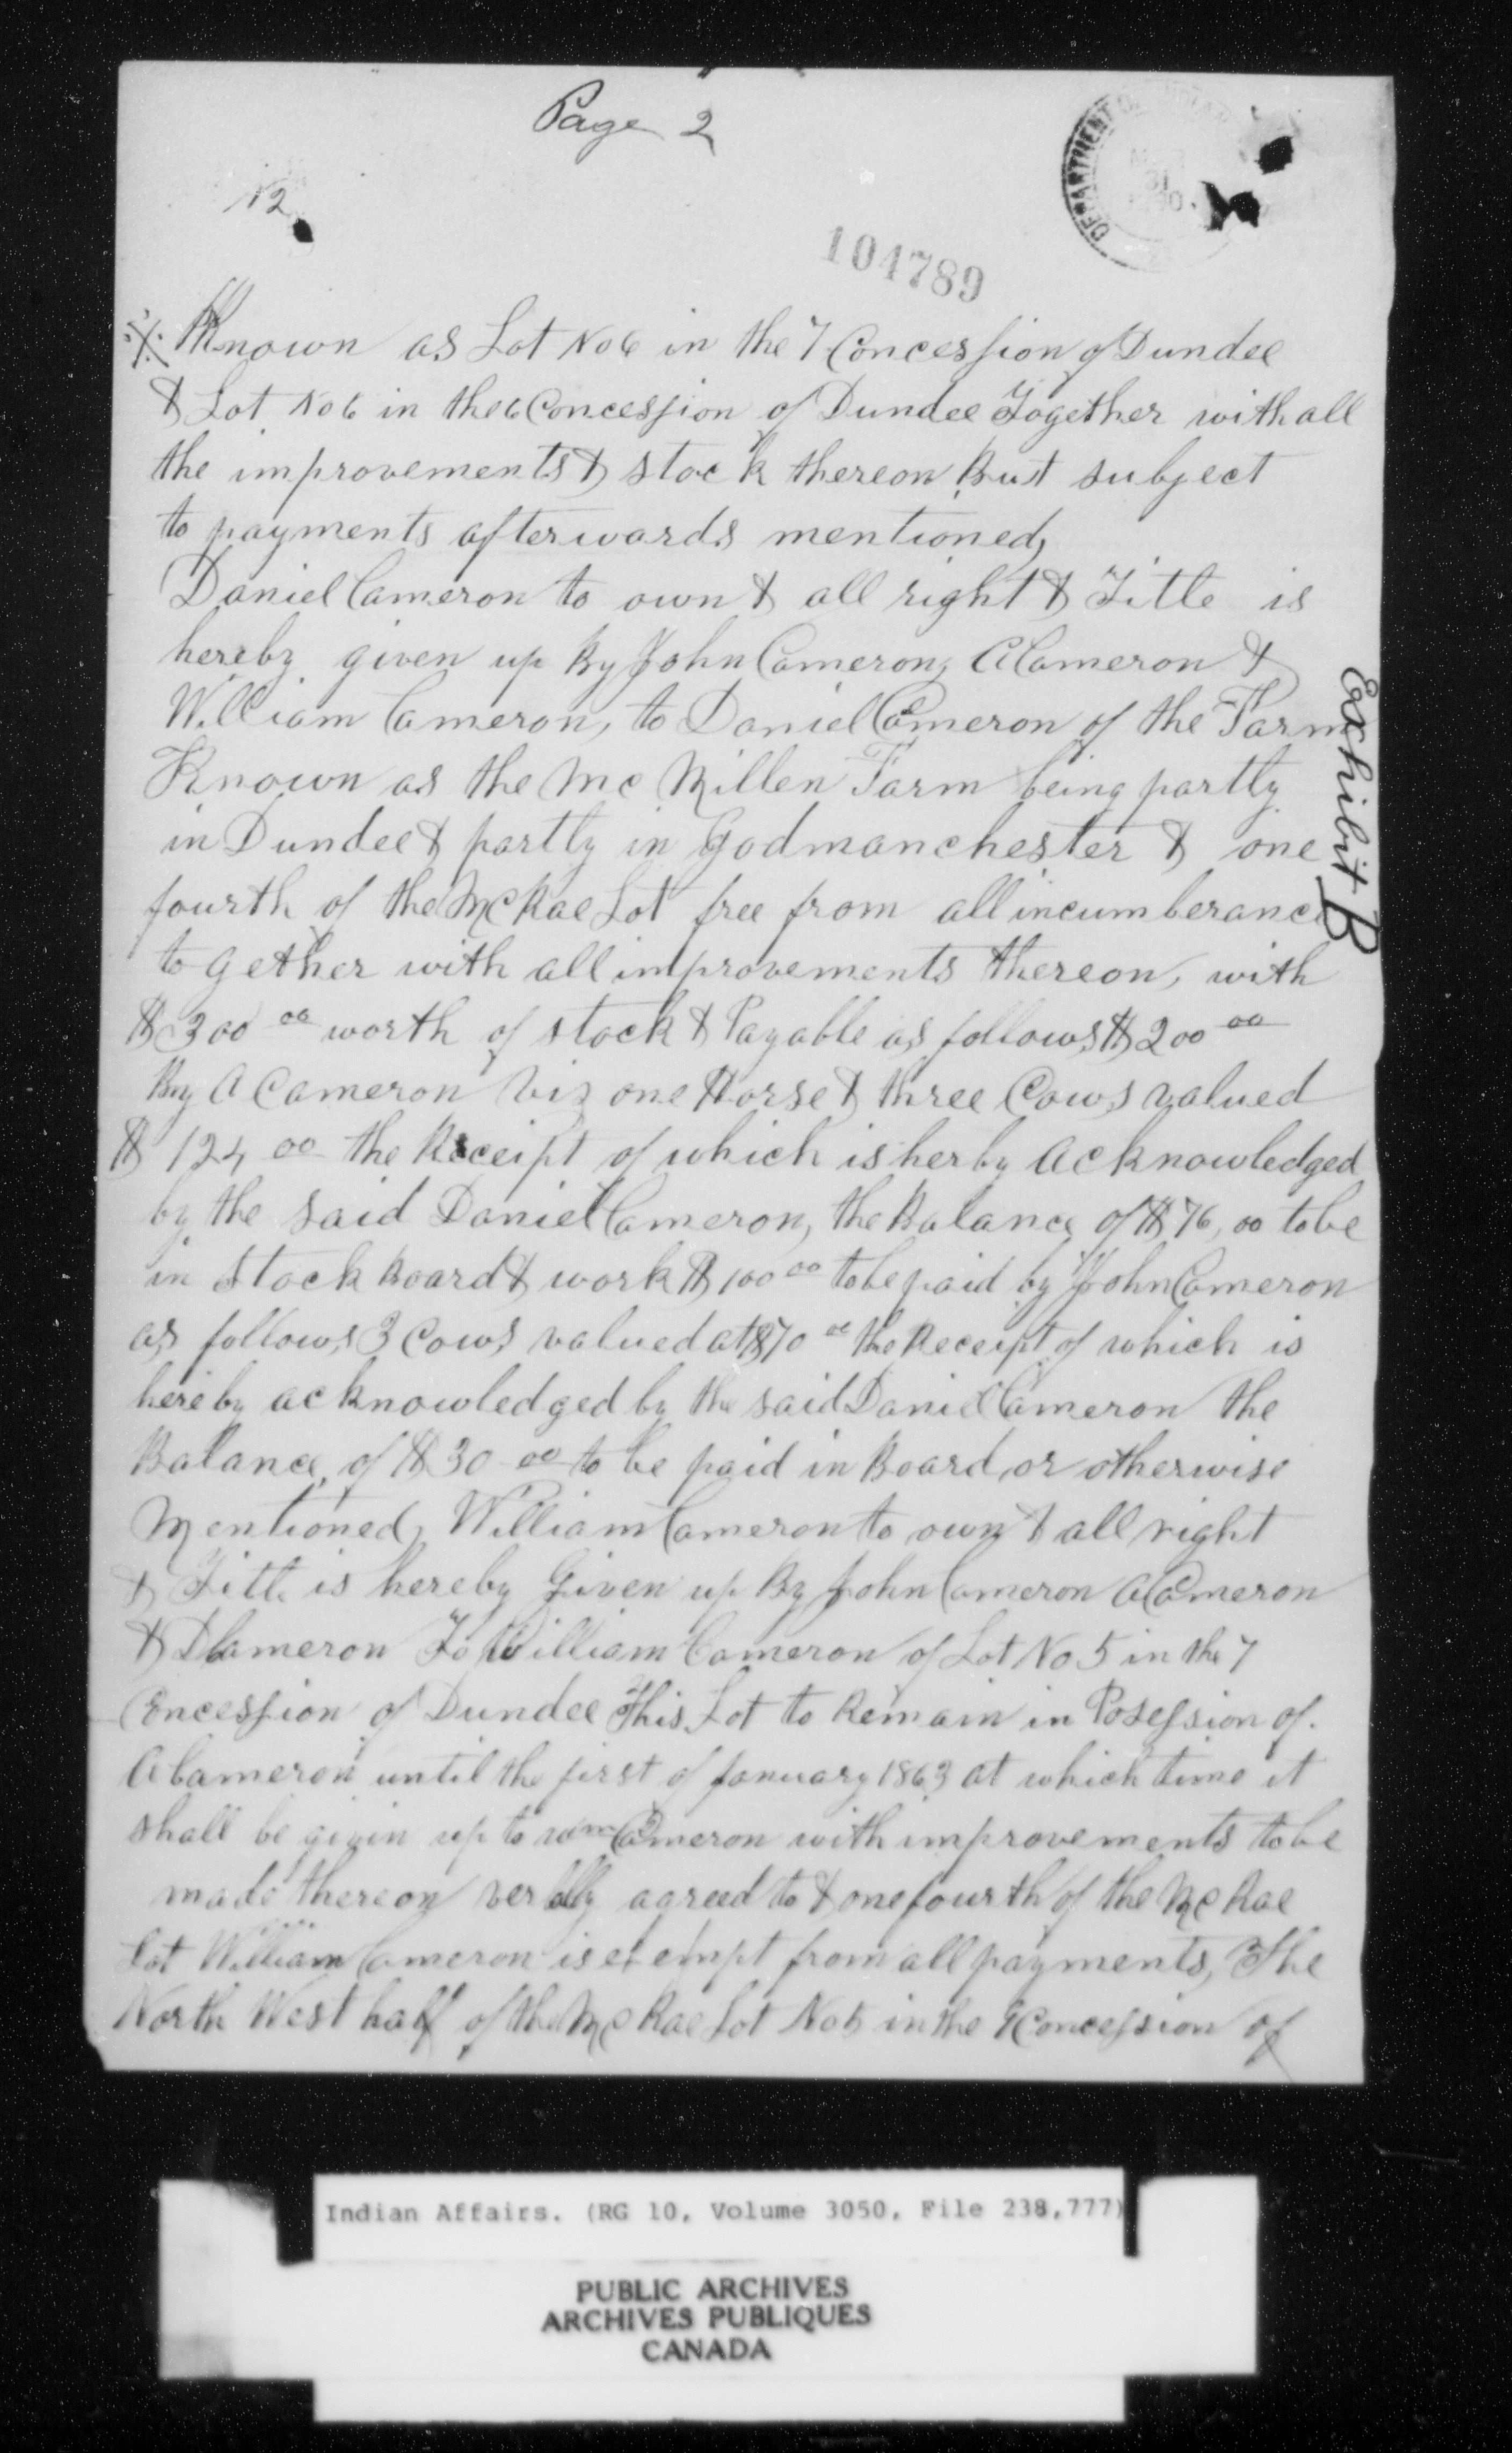 Page 2
12
DEPARTMENT OF INDIAN
31
104789
Known as Lot No 6 in the 7 Concession of Dundee
& Lot No 6 in the 6 Concession of Dundee Together with all
the improvements & stock thereon But subject
to payments afterwards mentioned,
Daniel Cameron to own & all right & Title is
hereby given up By John Cameron, A Cameron &
William Cameron, to Daniel Cameron of the Farm
Known as the Mc Millen Farm being partly
in Dundee & partly in Godmanchester & one
fourth of the McRae Lot free from all incumberance
to gether with all improvements thereon, with
$300 00 worth of stock & Payable as follows $200 00
By A Cameron viz one Horse & three Cows valued
$124 00 the Receipt of which is herby acknowledged
by the said Daniel Cameron, the Balance of $76,00 to be
in stock Board & work $100 00 to be paid by John Cameron
as follows 3 Cows valued at $70 00 the Receipt of which is
hereby acknowledged by the said Daniel Cameron the
Balance of $30 00 to be paid in Board or otherwise
Mentioned, William Cameron to own & all right
& Title is hereby Given up By John Cameron A Cameron
& D Cameron To William Cameron of Lot No 5 in the 7
Concession of Dundee This Lot to Remain in Posession of
A Cameron until the first of January 1863 at which time it
shall be givin up to Wm Cameron with improvements to be
made thereon verblly agreed to & one fourth of the McRae
Lot William Cameron is exempt from all payments, The
North West half of the McRae Lot No 5 in the Concession of
Exhibit B
Indian Affairs. (RG 10, Volume 3050, File 238,777)
PUBLIC ARCHIVES
ARCHIVES PUBLIQUES
CANADA